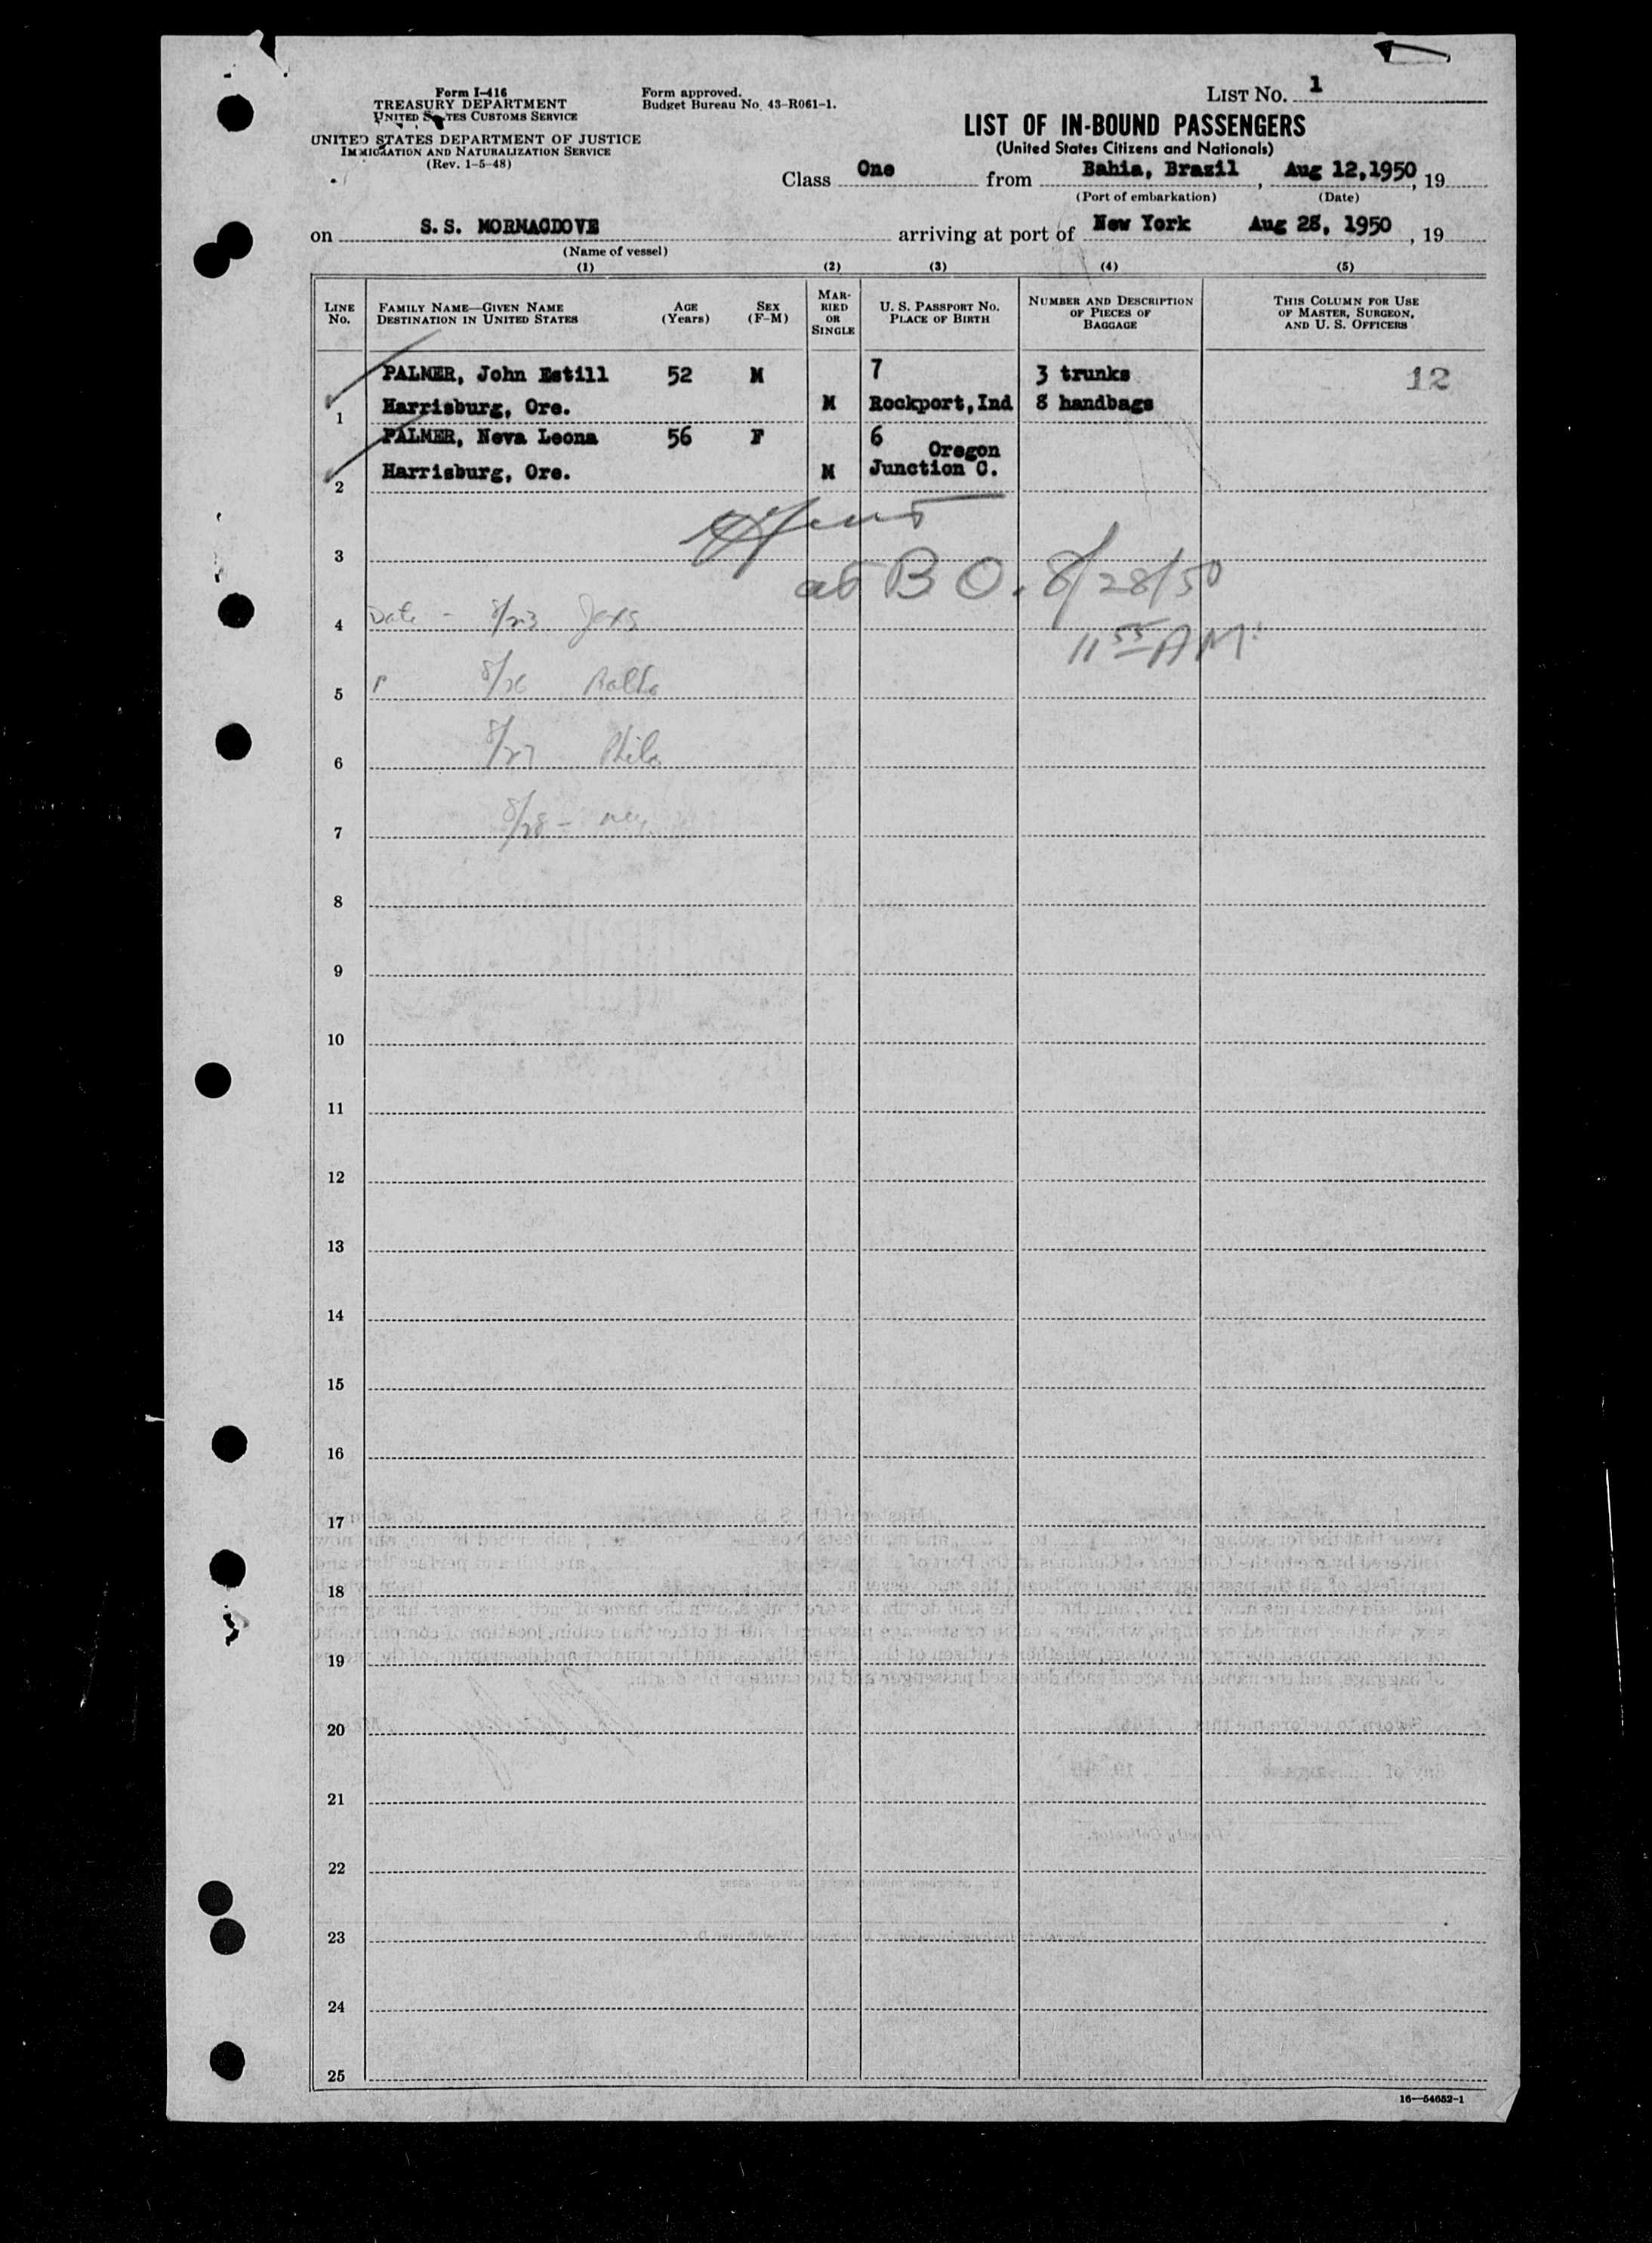 Form I-416
TREASURY DEPARTMENT
UNITED STATES CUSTOMS SERVICE
UNITED STATES DEPARTMENT OF JUSTICE
IMMIGRATION AND NATURALIZATION SERVICE
(Rev. 1-5-48)
Form approved.
Budget Bureau No. 43-R061-1.
LIST NO. 1
LIST OF IN-BOUND PASSENGERS
(United States Citizens and Nationals)
Class One from Bahia, Brazil, Aug 12,1950, 19
(Port of embarkation) (Date)
on S.S. MORMACDOVE arriving at port of New York Aug 28, 1950, 19
(Name of vessel)
(1) (2) (3) (4) (5)
LINE No. FAMILY NAME—GIVEN NAME DESTINATION IN UNITED STATES AGE (Years) SEX (F-M) MARRIED OR SINGLE U. S. PASSPORT NO. PLACE OF BIRTH NUMBER AND DESCRIPTION OF PIECES OF BAGGAGE THIS COLUMN FOR USE OF MASTER, SURGEON, AND U. S. OFFICERS
PALMER, John Estill 52 M 7 3 trunks 12
1 Harrisburg, Ore. M Rockport, Ind 8 handbags
PALMER, Neva Leona 56 F 6 Oregon
2 Harrisburg, Ore. M Junction C.
3
at B O. 8/28/50
4 Date - 8/23
11 55 AM
5 8/26 Balto
6 8/27 Phila
7 8/28 -
8
9
10
11
12
13
14
15
16
17
18
19
20
21
22
23
24
25
16—54652-1